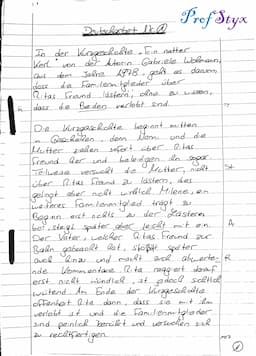 Prof Styx
Deutscharbeit Nr. 1
In der Kurzgeschichte „Ein netter
Kerl" von der Autorin Gabriele Wohmann,
aus dem Jahre 1978, geht es darum,
dass die Familienmitglieder über
Ritas Freund lästern, ohne zu wissen,
dass die Beiden verlobt sind.
Die Kurzgeschichte beginnt mitten
im Geschehen, denn Nanni und die
Mutter ziehen sofort über Ritas
Freund her und beleidigen ihn sogar.
Teilweise versucht die Mutter, nicht
über Ritas Freund zu lästern, dies
gelingt aber nicht wirklich. Milene, ein
weiteres Familienmitglied trägt zu
Beginn erst nichts zu der Lästerei
bei, steigt später aber leicht mit ein.
Der Vater, welcher Ritas Freund zur
Bahn gebracht hat, stößt später
auch hinzu und macht auch abwerte-
nde Kommentare. Rita reagiert darauf
erst nicht mündlich, ist jedoch sichtlich
wütend. Am Ende der Kurzgeschichte
offenbart Rita dann, dass sie mit ihm
verlobt ist und die Familienmitglieder
sind peinlich berührt und versuchen sich
zu rechtfertigen.
St
A
R
1